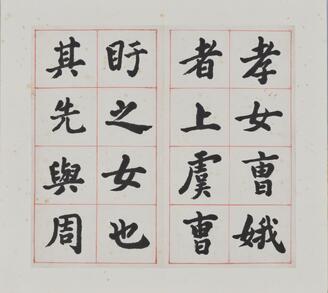 孝女曺娥
者上虞曺
盱之女也
其先與周